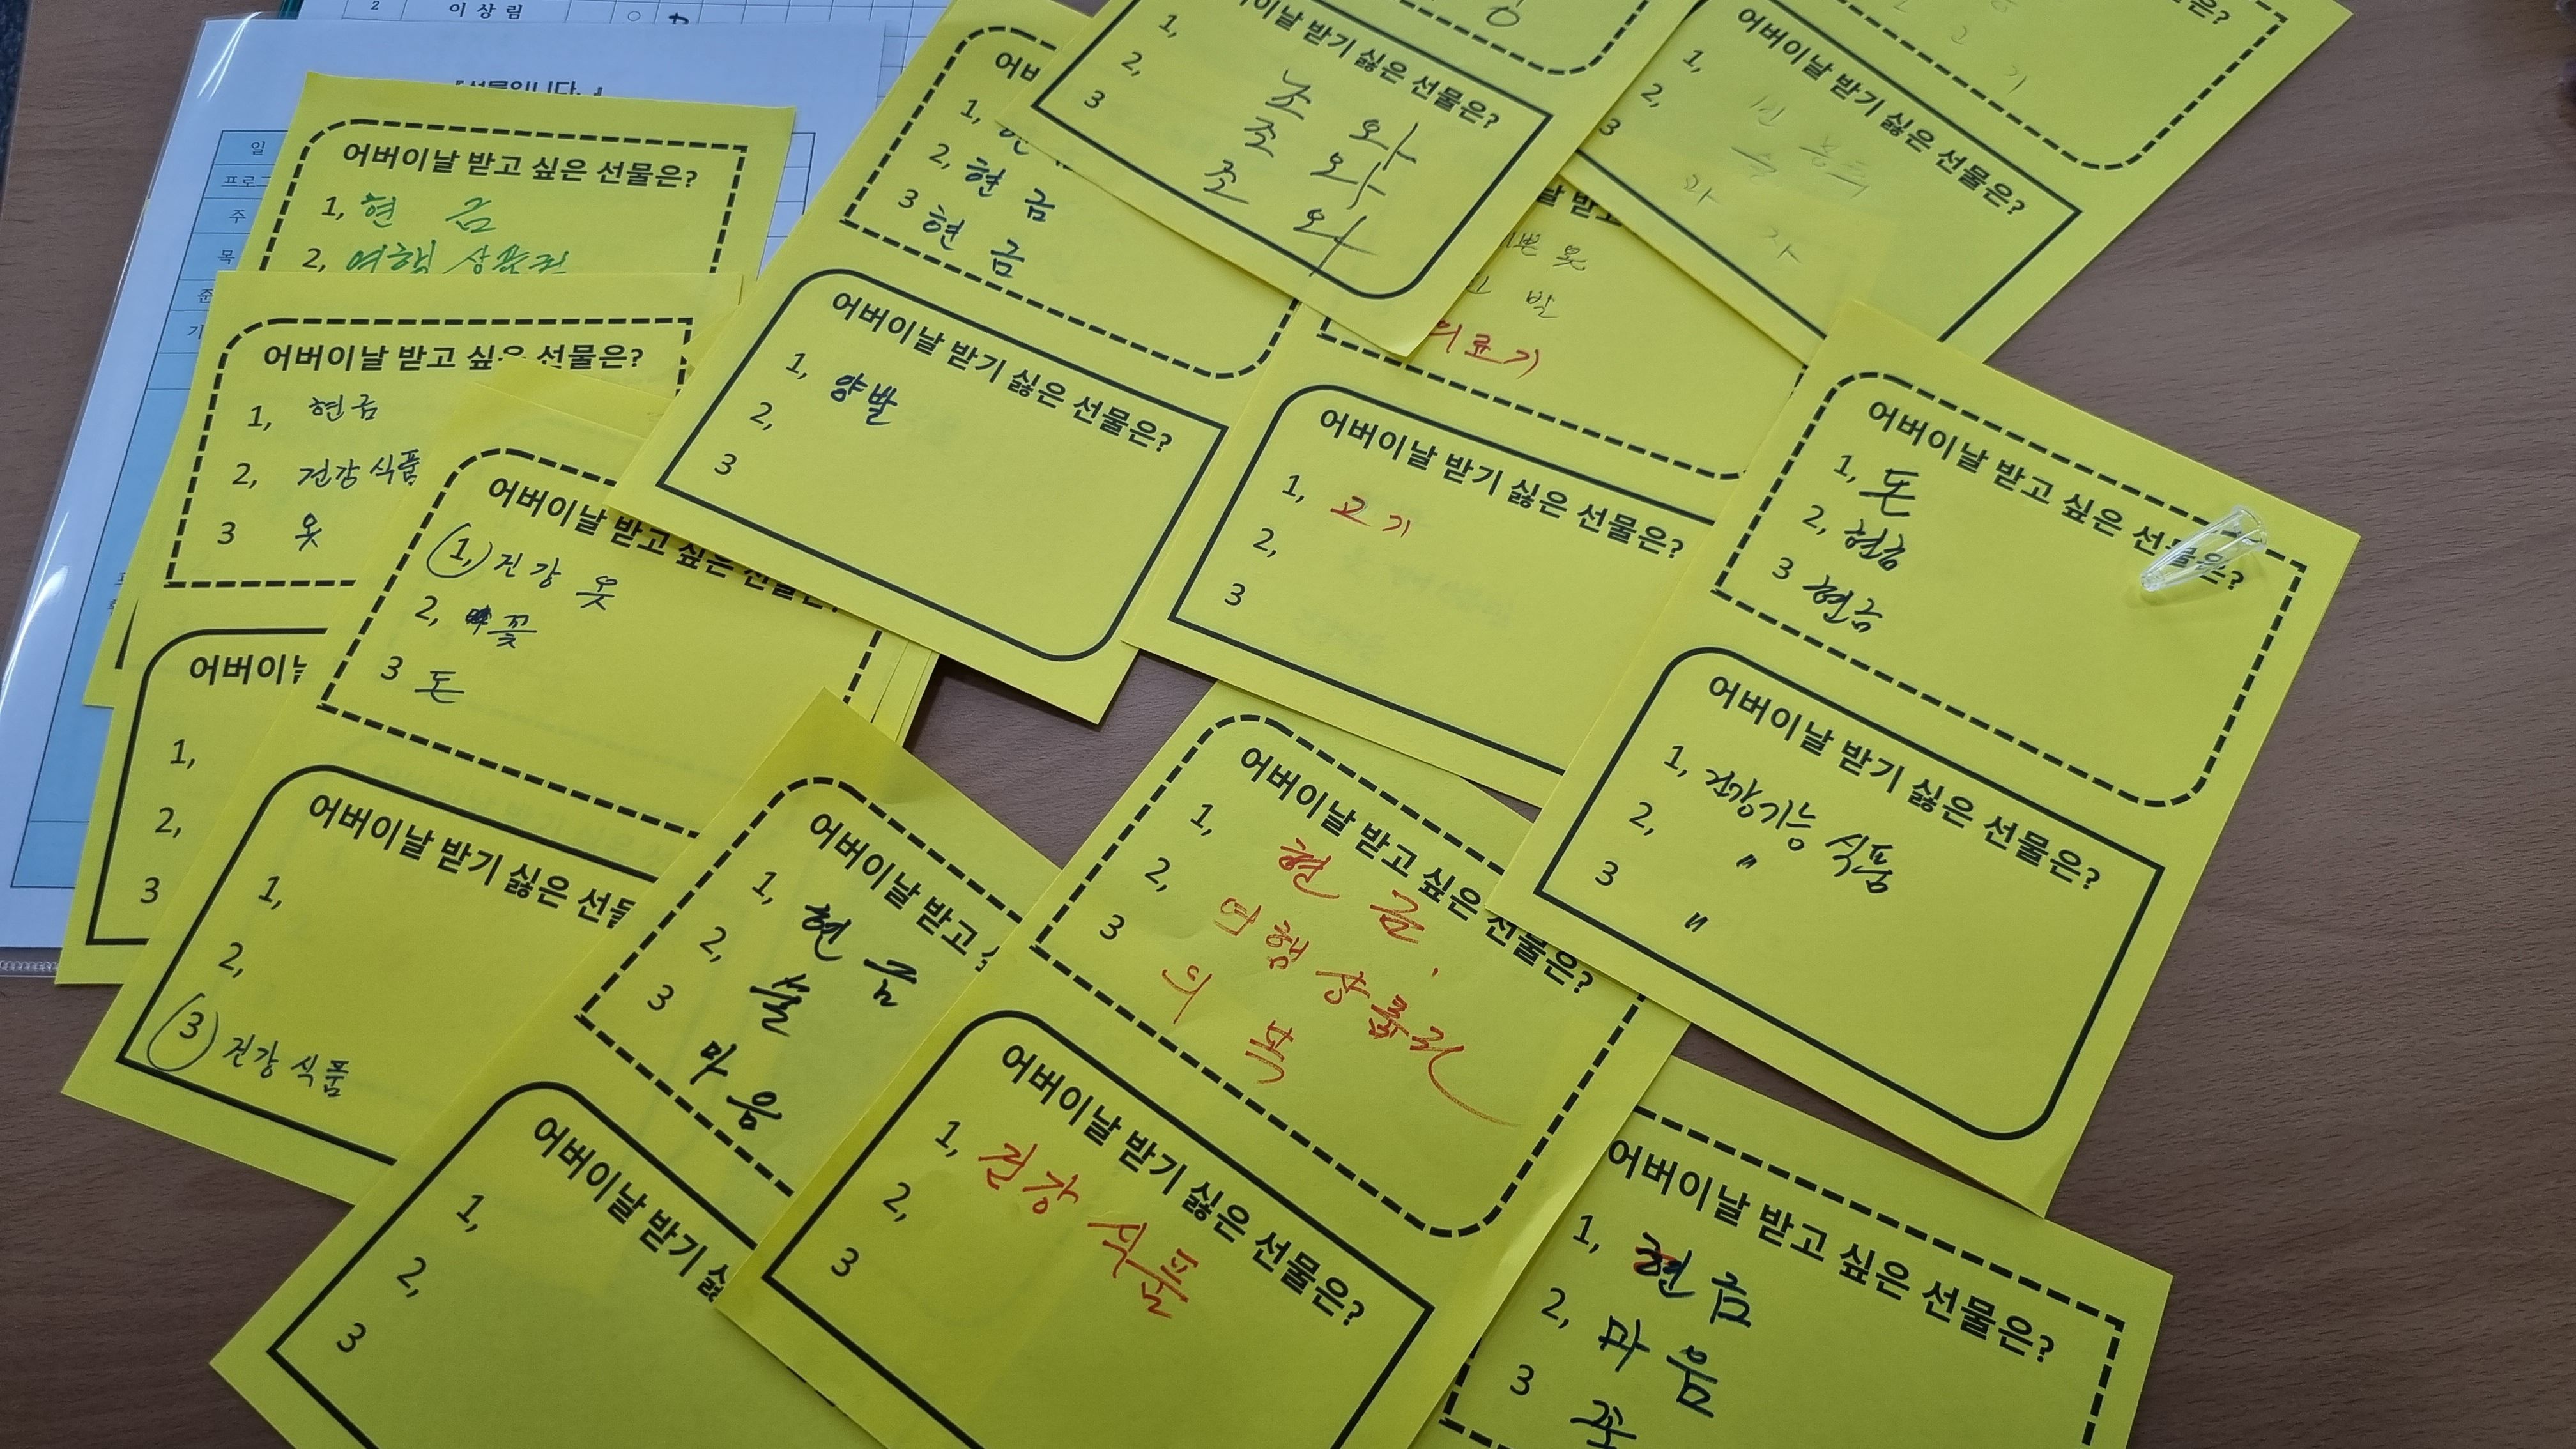 2 이상림
『선물입니다.』
어버이날 받고 싶은 선물은?
1, 현 금
2, 여행 상품권
어버이날 받고 싶은 선물은?
1, 현금
2, 건강 식품
3 옷
어버이날
1,
2,
3
어버이날 받고 싶은 선물은?
1, 건강 옷
2, 꽃
3 돈
어버이날 받기 싫은 선물
1,
2,
3 건강 식품
1,
2, 현 금
3 현 금
어버이날 받기 싫은 선물은?
1, 양발
2,
3
받기 싫은 선물은?
1,
2,
3
조 와
조 와
의료기
어버이날 받기 싫은 선물은?
1, 고기
2,
3
은?
어버이날 받기 싫은 선물은?
1,
2,
3
과 자
어버이날 받고 싶은 선물은?
1, 돈
2, 현금
3 현금
어버이날 받기 싫은 선물은?
1, 건강기능 식품
2, 〃
3 〃
어버이날 받고
1, 현 금
2, 술
3 마음
어버이날 받기 싫
1,
2,
3
어버이날 받고 싶은 선물은?
1, 현 금.
2, 여행 상품권
3 의 복
어버이날 받기 싫은 선물은?
1, 건강 식품
2,
3
어버이날 받고 싶은 선물은?
1, 현금
2, 마음
3